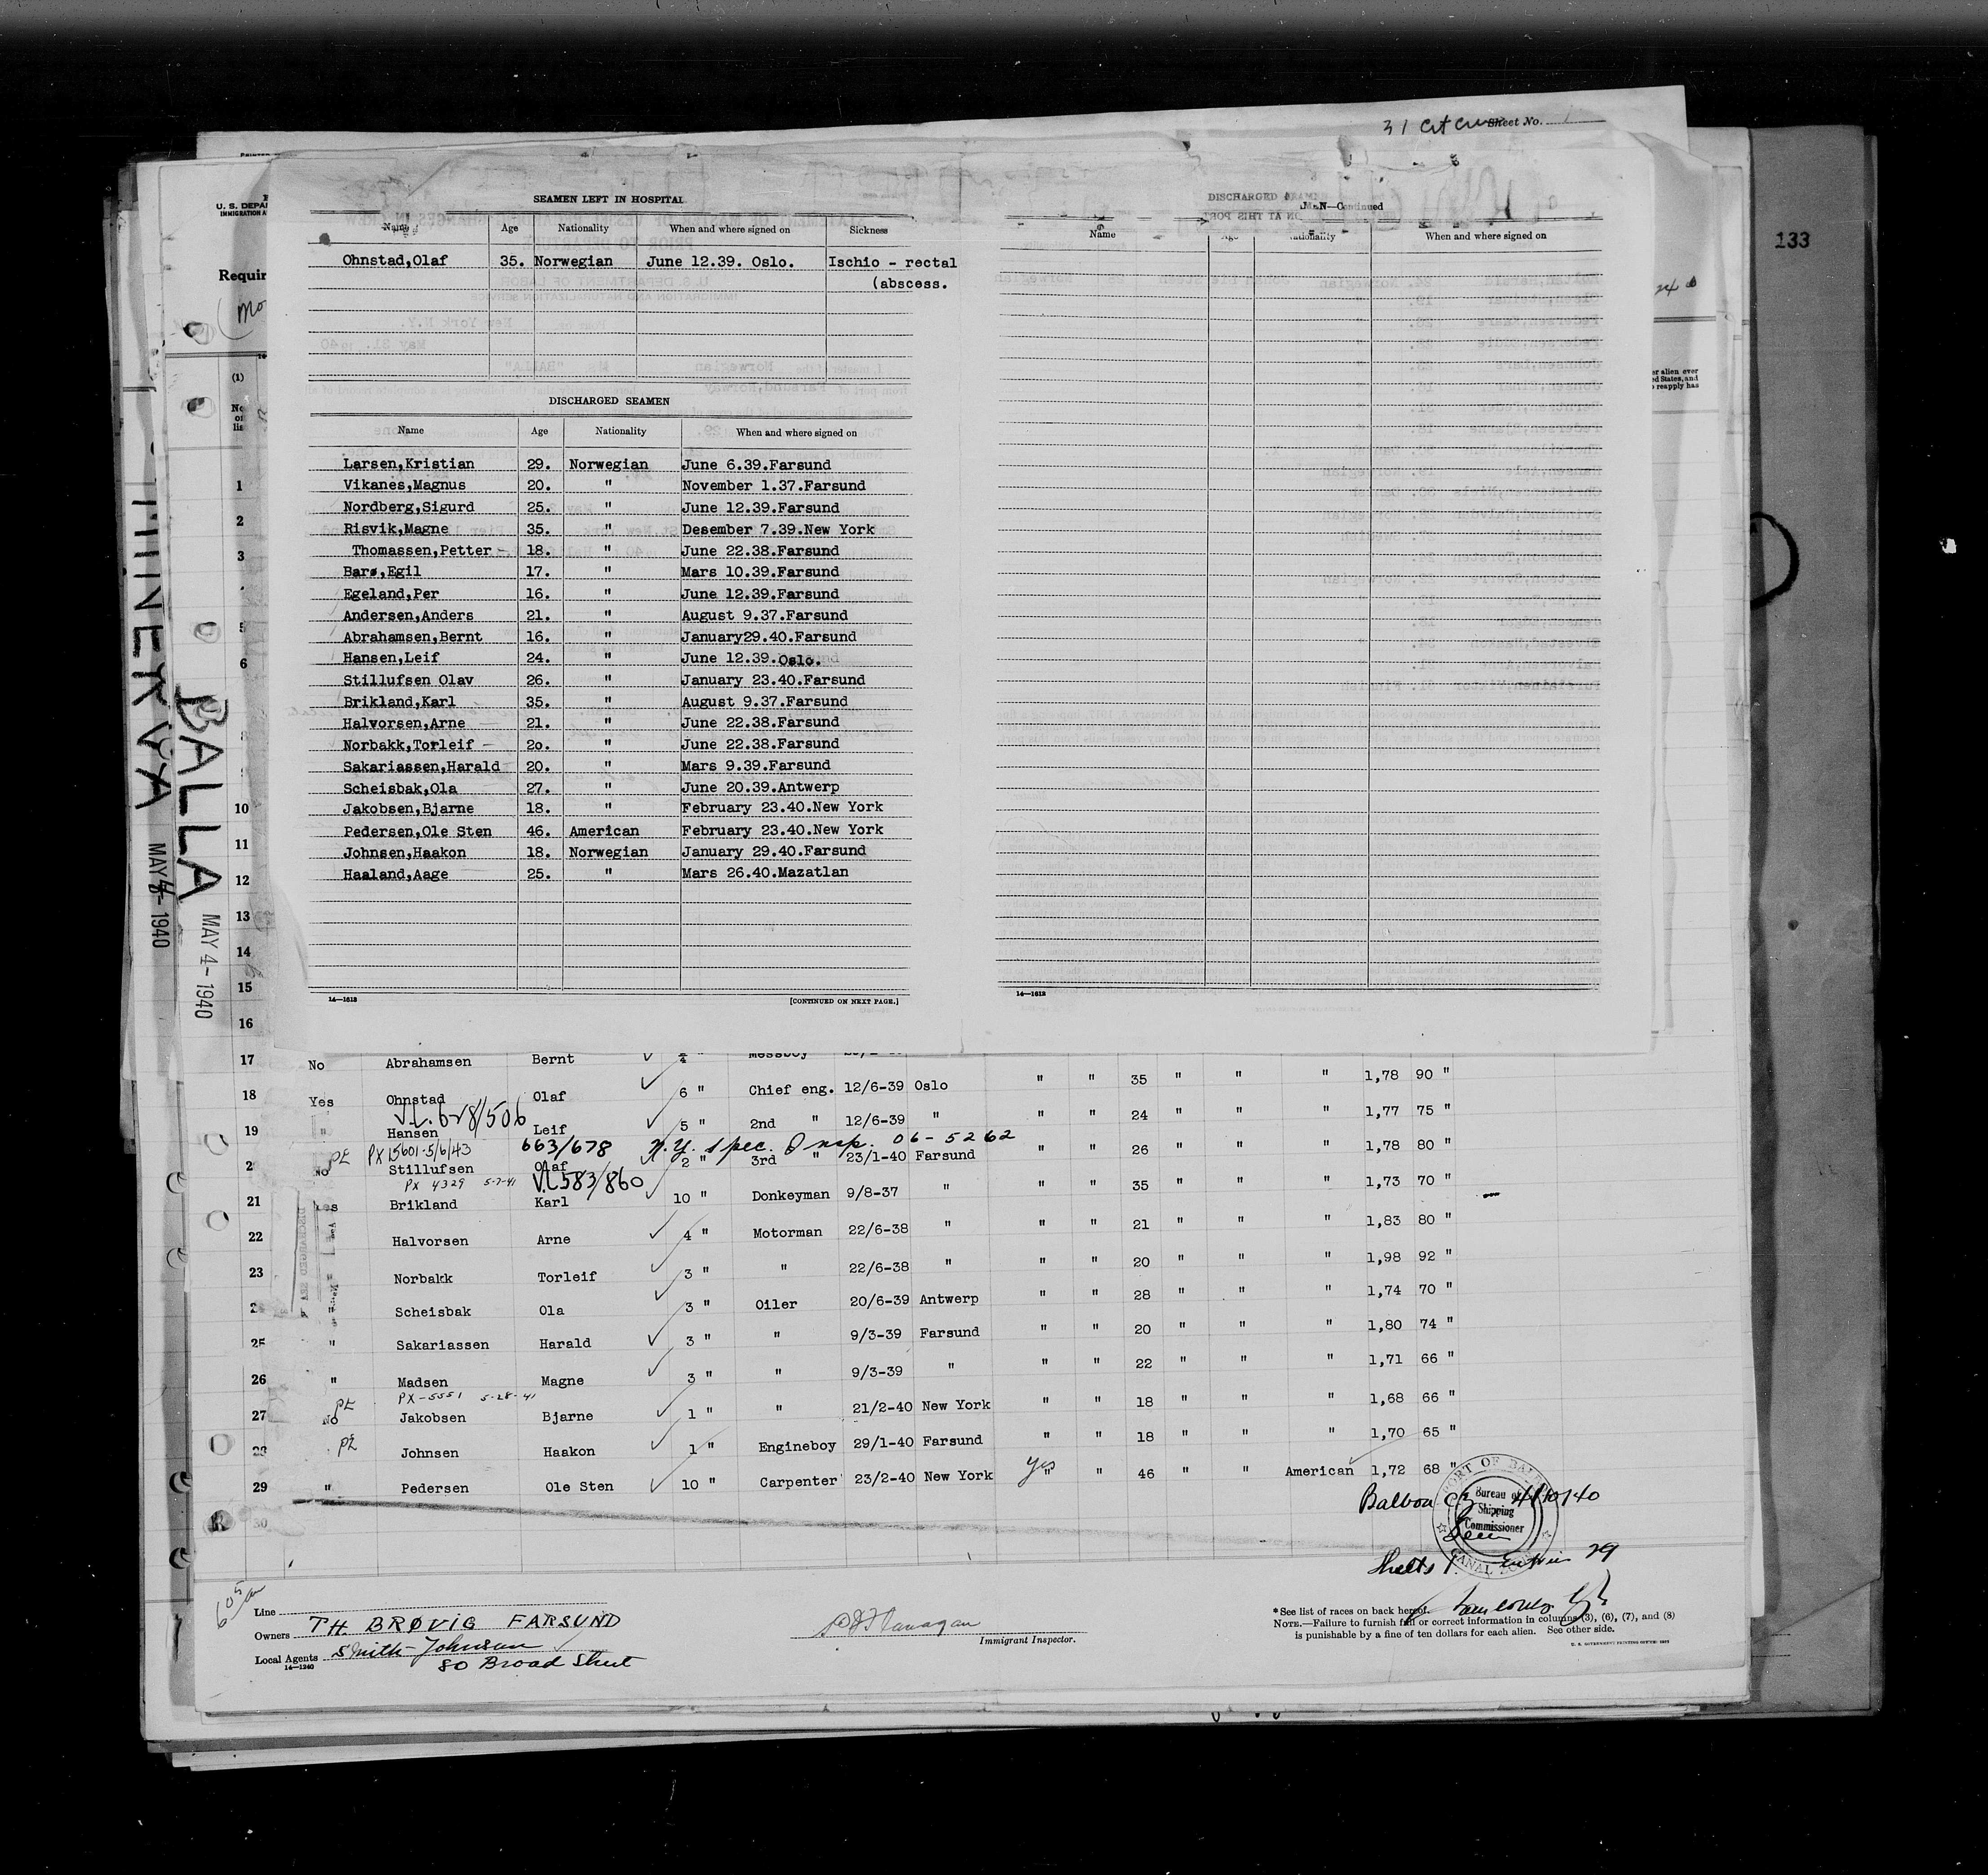 31
Sheet No. 1
U. S. DEPA
IMMIGRATION A
Requir
133
SEAMEN LEFT IN HOSPITAL
Name Age Nationality When and where signed on Sickness
Ohnstad,Olaf 35. Norwegian June 12.39. Oslo. Ischio - rectal
(abscess.
DISCHARGED SEAMEN
Name Age Nationality When and where signed on
Larsen,Kristian 29. Norwegian June 6.39.Farsund
Vikanes,Magnus 20. " November 1.37.Farsund
Nordberg,Sigurd 25. " June 12.39.Farsund
Risvik,Magne 35. " Desember 7.39.New York
Thomassen,Petter - 18. " June 22.38.Farsund
Barø,Egil 17. " Mars 10.39.Farsund
Egeland,Per 16. " June 12.39.Farsund
Andersen,Anders 21. " August 9.37.Farsund
Abrahamsen,Bernt 16. " January29.40.Farsund
Hansen,Leif 24. " June 12.39.Oslo.
Stillufsen Olav 26. " January 23.40.Farsund
Brikland,Karl 35. " August 9.37.Farsund
Halvorsen,Arne 21. " June 22.38.Farsund
Norbakk,Torleif - 2o. " June 22.38.Farsund
Sakariassen,Harald 20. " Mars 9.39.Farsund
Scheisbak,Ola 27. " June 20.39.Antwerp
Jakobsen,Bjarne 18. " February 23.40.New York
Pedersen,Ole Sten 46. American February 23.40.New York
Johnsen,Haakon 18. Norwegian January 29.40.Farsund
Haaland,Aage 25. " Mars 26.40.Mazatlan
14—1613 [CONTINUED ON NEXT PAGE.]
DISCHARGED
—Continued
Name Age Nationality When and where signed on
14—1613
er alien ever
ed States, and
reapply has
(1)
No
on
lis
1
2
3
5
6
10
11
12
13
14
15
16
MINERVA
MAY 4- 1940
BALLA
MAY 4- 1940
17 No Abrahamsen Bernt 4 " Messboy
18 Yes Ohnstad Olaf 6 " Chief eng. 12/6-39 Oslo " " 35 " " " 1,78 90 "
V.L. 628/506
19 " Hansen Leif 5 " 2nd " 12/6-39 " " " 24 " " " 1,77 75 "
PE PX 15601-5/6/43 663/678 N.Y. spec. Insp. 06-5262
2 No Stillufsen Olaf 2 " 3rd " 23/1-40 Farsund " " 26 " " " 1,78 80 "
PX 4329 5-7-41 VL583/860
21 Yes Brikland Karl 10 " Donkeyman 9/8-37 " " " 35 " " " 1,73 70 "
22 Halvorsen Arne 4 " Motorman 22/6-38 " " " 21 " " " 1,83 80 "
23 Norbakk Torleif 3 " " 22/6-38 " " " 20 " " " 1,98 92 "
2 Scheisbak Ola 3 " Oiler 20/6-39 Antwerp " " 28 " " " 1,74 70 "
25 " Sakariassen Harald 3 " " 9/3-39 Farsund " " 20 " " " 1,80 74 "
26 " Madsen Magne 3 " " 9/3-39 " " " 22 " " " 1,71 66 "
PE PX-5551 5-28-41
27 No Jakobsen Bjarne 1 " " 21/2-40 New York " " 18 " " " 1,68 66 "
28 PE Johnsen Haakon 1 " Engineboy 29/1-40 Farsund " " 18 " " " 1,70 65 "
29 " Pedersen Ole Sten 10 " Carpenter 23/2-40 New York yes " " 46 " " American 1,72 68 "
30
Balboa CZ 4/10/40
PORT OF BALBOA
Bureau of
Shipping
Commissioner
CANAL ZONE
Sheets 1. Entries 29
Line
Owners TH. BRØVIG FARSUND
Local Agents Smith-Johnson
80 Broad Street
14—1240
Flanagan
Immigrant Inspector.
*See list of races on back hereof.
NOTE.—Failure to furnish full or correct information in columns (3), (6), (7), and (8)
is punishable by a fine of ten dollars for each alien. See other side.
U. S. GOVERNMENT PRINTING OFFICE